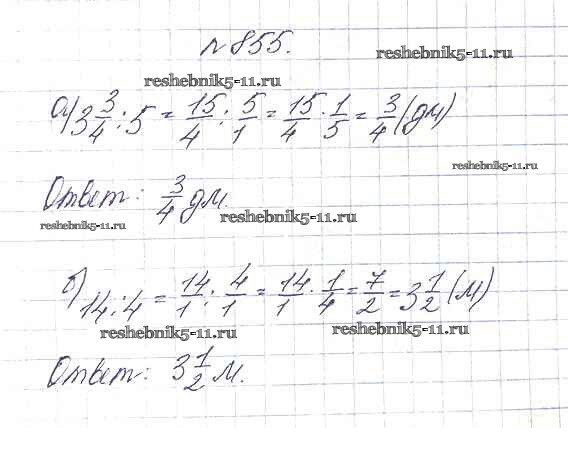 №855.
reshebnik5-11.ru
reshebnik5-11.ru
а) 3 3/4 : 5 = 15/4 : 5/1 = 15/4 · 1/5 = 3/4 (дм)
reshebnik5-11.ru
Ответ: 3/4 дм.
reshebnik5-11.ru
reshebnik5-11.ru
б) 14 : 4 = 14/1 : 4/1 = 14/1 · 1/4 = 7/2 = 3 1/2 (м)
reshebnik5-11.ru
reshebnik5-11.ru
Ответ: 3 1/2 м.